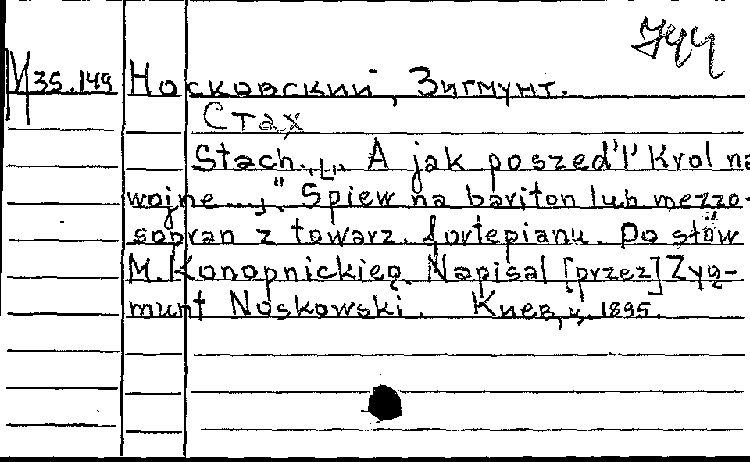 744
М 35.149 Носковский, Зигмунт.
Стах
Stach. „[„ A jak poszed'ł' Krol na
wojne ...]." Spiew na bariton lub mezzo-
sopran z towarz. fortepianu. Do słów
M. Konopnickieg. Napisal [przez] Zyg-
munt Noskowski. Киев, ц. 1895.